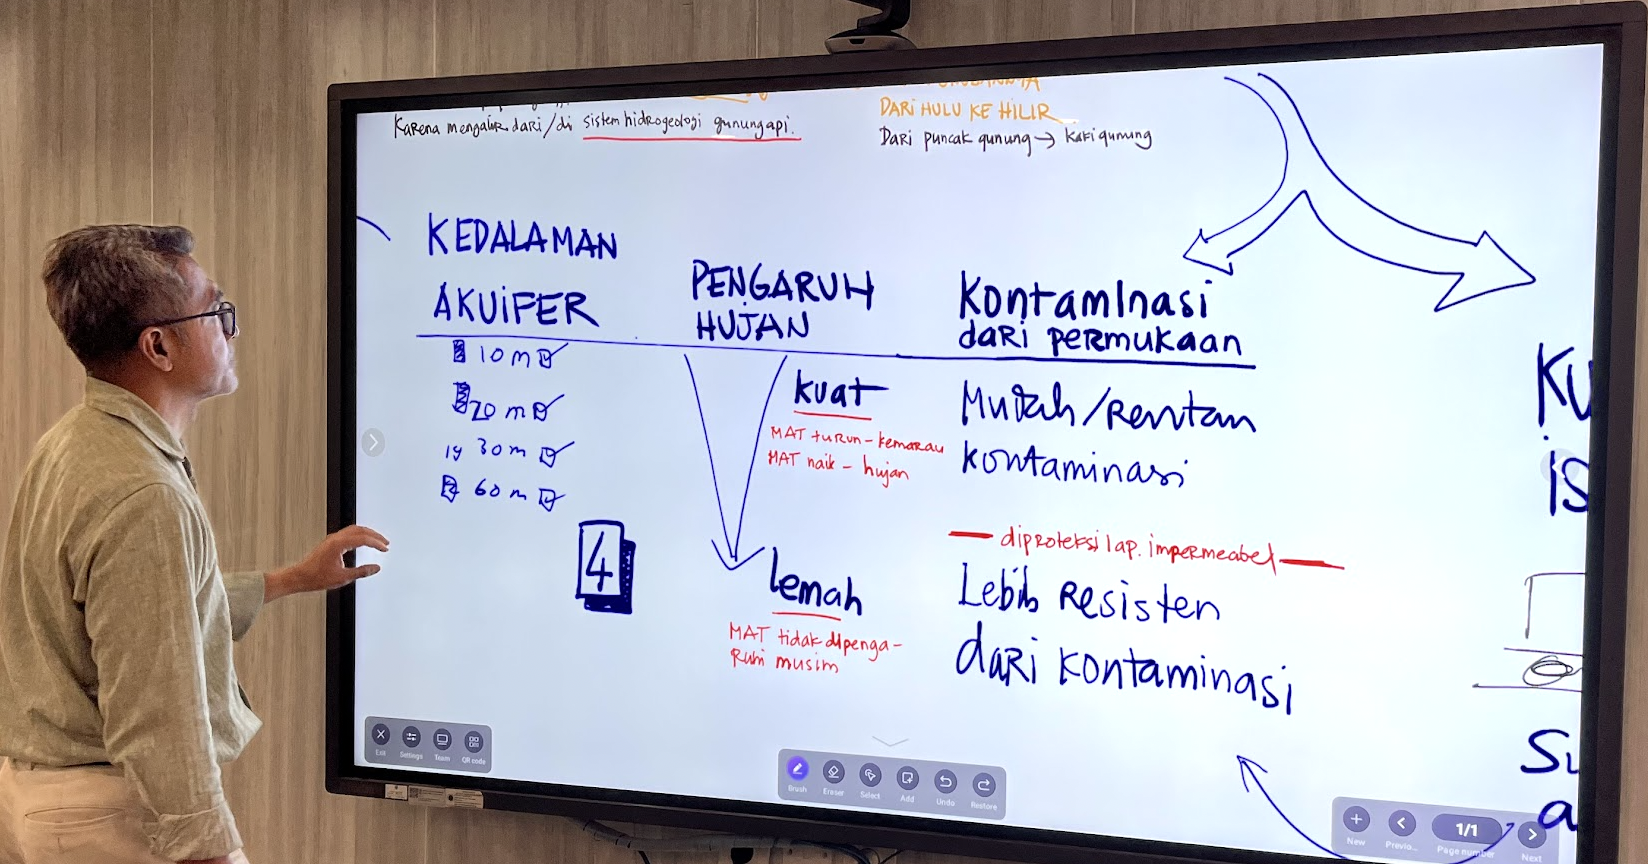 Karena mengalir dari/di sistem hidrogeologi gunungapi.
DARI HULU KE HILIR
Dari puncak gunung → kaki gunung
KEDALAMAN
AKUIFER
10 m
20 m
30 m
60 m
4
PENGARUH
HUJAN
kuat
MAT turun - kemarau
MAT naik - hujan
lemah
MAT tidak dipenga-
ruhi musim
Kontaminasi
dari permukaan
Mudah/Rentan
kontaminasi
— diproteksi lap. impermeabel —
Lebih Resisten
dari kontaminasi
KU
is
Su
a
Exit Settings Team QR code
Brush Eraser Select Add Undo Restore
New Previo... 1/1 Next
Page number